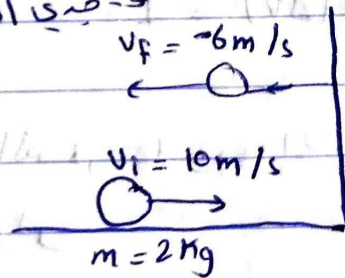 Vf = -6m/s
Vi = 10m/s
m = 2Kg